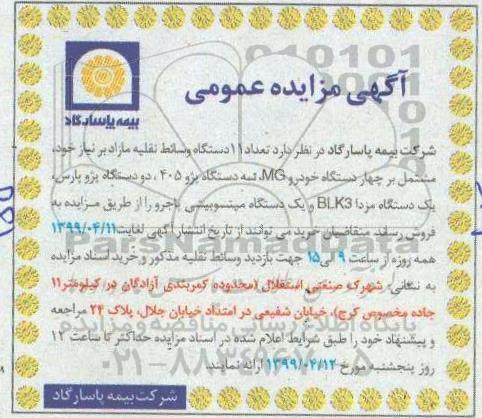 آگهی مزایده عمومی
بیمه پاسارگاد
شرکت بیمه پاسارگاد در نظر دارد تعداد ۱۱ دستگاه وسائط نقلیه مازاد بر نیاز خود،
مشتمل بر چهار دستگاه خودرو MG، سه دستگاه پژو ۴۰۵، دو دستگاه پژو پارس،
یک دستگاه مزدا BLK3 و یک دستگاه میتسوبیشی پاجرو را از طریق مزایده به
فروش رساند. متقاضیان خرید می توانند از تاریخ انتشار آگهی لغایت ۱۳۹۹/۰۴/۱۱
همه روزه از ساعت ۹ الی ۱۵ جهت بازدید وسائط نقلیه مذکور و خرید اسناد مزایده
به نشانی: شهرک صنعتی استقلال (محدوده کمربندی آزادگان در کیلومتر ۱۱
جاده مخصوص کرج)، خیابان شفیعی در امتداد خیابان جلال، پلاک ۲۴ مراجعه
و پیشنهاد خود را طبق شرایط اعلام شده در اسناد مزایده حداکثر تا ساعت ۱۲
روز پنجشنبه مورخ ۱۳۹۹/۰۴/۱۲ ارائه نمایند.
شرکت بیمه پاسارگاد
ParsNamadData
پایگاه اطلاع رسانی مناقصه و مزایده